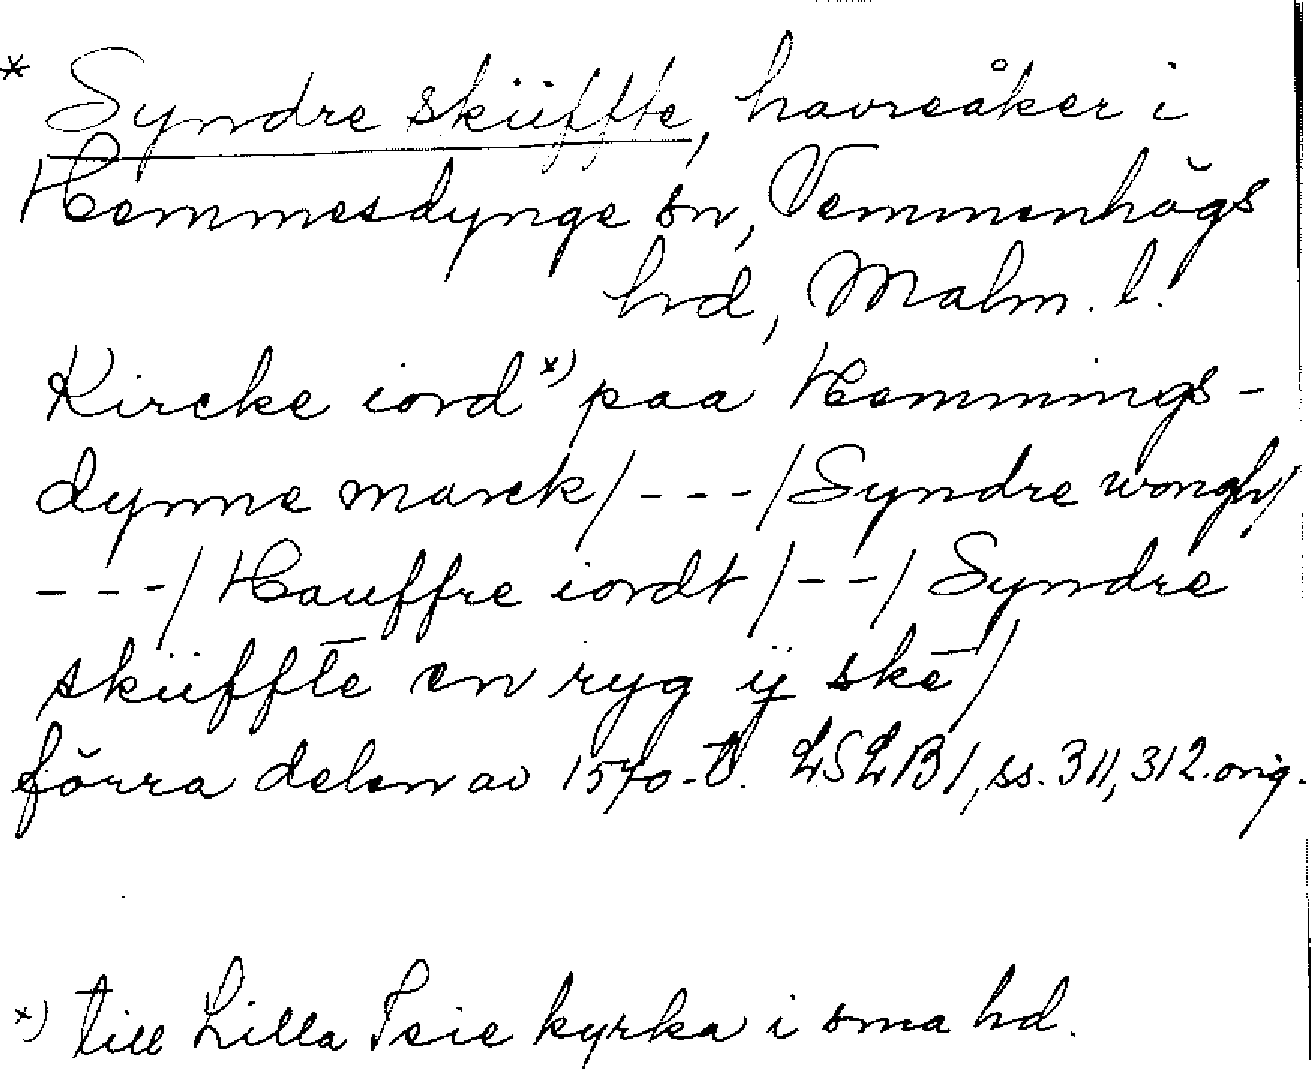 * Syndre skiiffte, havreåker i
Hemmesdynge sn, Vemmenhögs
hd, Malm. l.
Kircke iord x) paa Hemmings-
dynne marck/---/Syndre wongh/
---/Hauffre iordt/--/Syndre
skiifftē en ryg ÿ skē/
förra delen av 1570-t. LSLB1, ss. 311, 312. orig.
x) till Lilla Isie kyrka i sma hd.